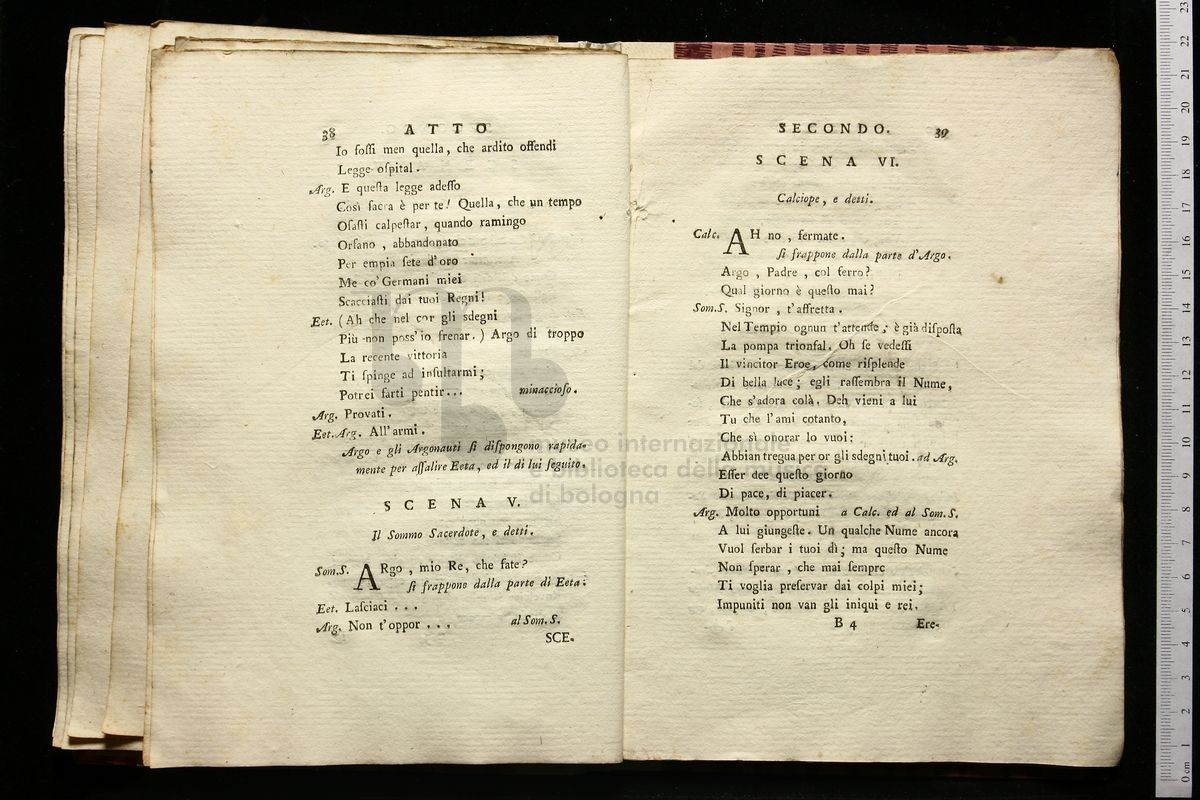 38 ATTO
Io foſſi men quella, che ardito offendi
Legge oſpital.
Arg. E queſta legge adeſſo
Così ſacra è per te! Quella, che un tempo
Oſaſti calpeſtar, quando ramingo
Orfano, abbandonato
Per empia ſete d'oro
Me co' Germani miei
Scacciaſti dai tuoi Regni!
Eet. (Ah che nel cor gli sdegni
Più non poss' io frenar.) Argo di troppo
La recente vittoria
Ti ſpinge ad inſultarmi;
Potrei farti pentir... minaccioſo.
Arg. Provati.
Eet. Arg. All' armi.
Argo e gli Argonauti ſi diſpongono rapida-
mente per aſſalire Eeta, ed il di lui ſeguito.
SCENA V.
Il Sommo Sacerdote, e detti.
Som.S. ARgo, mio Re, che fate?
ſi frappone dalla parte di Eeta:
Eet. Laſciaci...
Arg. Non t'oppor... al Som. S.
SCE-
SECONDO. 39
SCENA VI.
Calciope, e detti.
Calc. AH no, fermate.
ſi frappone dalla parte d'Argo.
Argo, Padre, col ferro?
Qual giorno è queſto mai?
Som.S. Signor, t'affretta.
Nel Tempio ognun t'attende; è già diſpoſta
La pompa trionfal. Oh ſe vedeſſi
Il vincitor Eroe, come riſplende
Di bella luce; egli raſſembra il Nume,
Che s'adora colà. Deh vieni a lui
Tu che l'ami cotanto,
Che sì onorar lo vuoi:
Abbian tregua per or gli sdegni tuoi. ad Arg.
Eſſer dee queſto giorno
Di pace, di piacer.
Arg. Molto opportuni a Calc. ed al Som. S.
A lui giungeſte. Un qualche Nume ancora
Vuol ſerbar i tuoi dì; ma queſto Nume
Non ſperar, che mai ſempre
Ti voglia preſervar dai colpi miei;
Impuniti non van gli iniqui e rei.
B 4 Ere-
museo internazionale
e biblioteca della musica
di bologna
0 cm 1 2 3 4 5 6 7 8 9 10 11 12 13 14 15 16 17 18 19 20 21 22 23